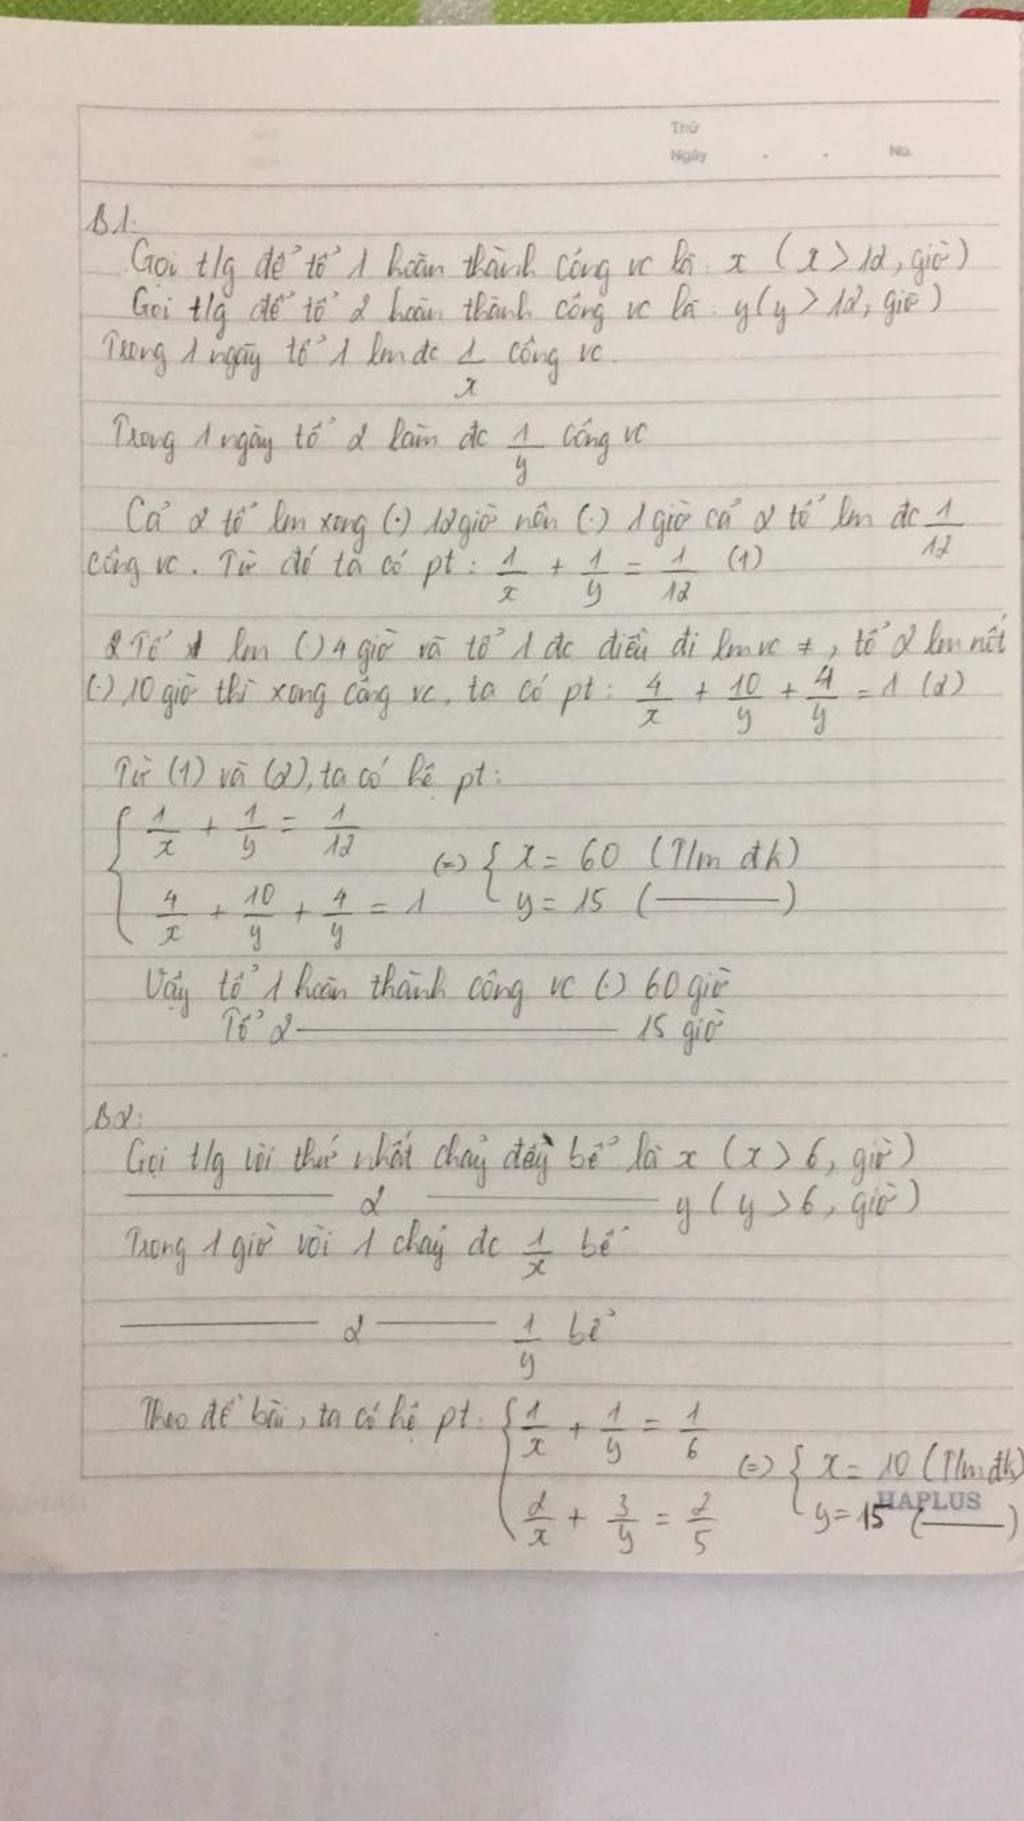 Thứ
Ngày . . No.
B1:
Gọi t/g để tổ 1 hoàn thành công vc là x (x > 12, giờ)
Gọi t/g để tổ 2 hoàn thành công vc là y (y > 12, giờ)
Trong 1 ngày tổ 1 lm đc 1/x công vc.
Trong 1 ngày tổ 2 làm đc 1/y công vc
Cả 2 tổ lm xong (.) 12 giờ nên (.) 1 giờ cả 2 tổ lm đc 1/12
công vc. Từ đó ta có pt: 1/x + 1/y = 1/12 (1)
2 Tổ lm (.) 4 giờ và tổ 1 đc điều đi lm vc ≠, tổ 2 lm nốt
(.) 10 giờ thì xong công vc, ta có pt: 4/x + 10/y + 4/y = 1 (2)
Từ (1) và (2), ta có hệ pt:
{ 1/x + 1/y = 1/12
4/x + 10/y + 4/y = 1 (=) { x = 60 (T/m đk)
y = 15 (———)
Vậy tổ 1 hoàn thành công vc (.) 60 giờ
Tổ 2 ——— 15 giờ
B2:
Gọi t/g vòi thứ nhất chảy đầy bể là x (x > 6, giờ)
——— 2 ——— y (y > 6, giờ)
Trong 1 giờ vòi 1 chảy đc 1/x bể
——— 2 ——— 1/y bể
Theo đề bài, ta có hệ pt: { 1/x + 1/y = 1/6
2/x + 3/y = 2/5 (=) { x = 10 (T/m đk)
y = 15 (———)
HAPLUS